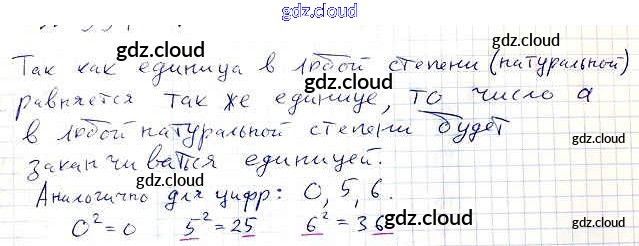 gdz.cloud
Так как единица в любой степени (натуральной)
равняется так же единице, то число а
в любой натуральной степени будет
заканчиваться единицей.
Аналогично для цифр: 0, 5, 6.
0² = 0 5² = 25 6² = 36
gdz.cloud
gdz.cloud
gdz.cloud
gdz.cloud
gdz.cloud
gdz.cloud
gdz.cloud
gdz.cloud